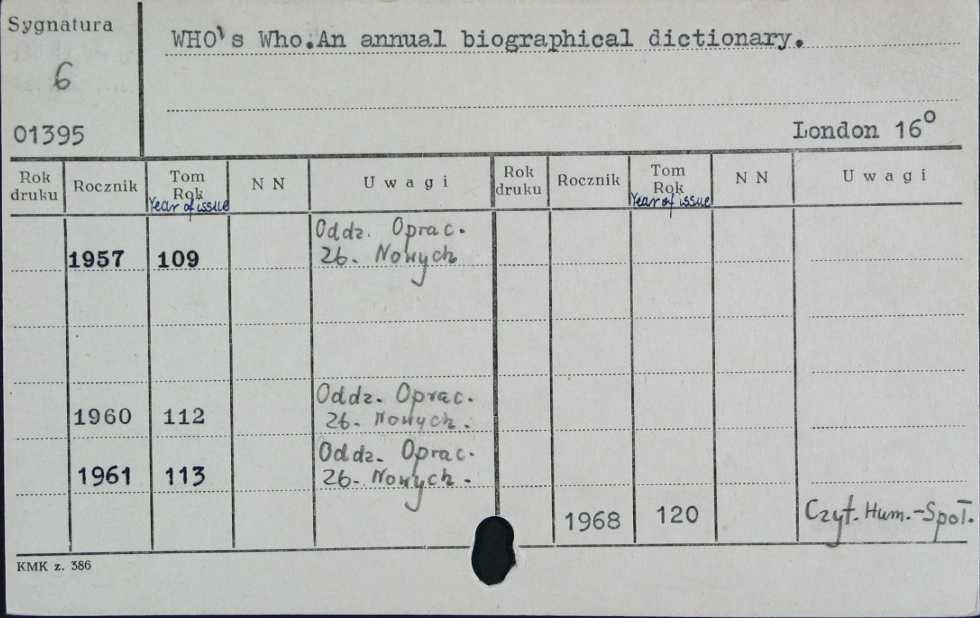 Sygnatura
6
01395
WHO's Who.An annual biographical dictionary.
London 16°
Rok druku Rocznik Tom Rok Year of issue N N Uwagi Rok druku Rocznik Tom Rok Year of issue N N Uwagi
1957 109 Oddz. Oprac.
Zb. Nowych
1960 112 Oddz. Oprac.
Zb. Nowych.
1961 113 Oddz. Oprac.
Zb. Nowych.
1968 120 Czyt. Hum.-Społ.
KMK z. 386